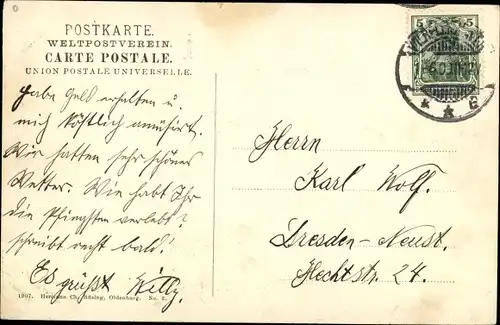 POSTKARTE.
WELTPOSTVEREIN.
CARTE POSTALE.
UNION POSTALE UNIVERSELLE.
5 5
Habe Geld erhalten u.
mich köstlich amüsirt.
Wir hatten sehr schönes
Wetter. Wie habt Ihr
die Pfingsten verlebt?
schreibt recht bald!
Es grüßt Willy.
Herrn
Karl Wolf.
Dresden-Neust.
Hechtstr. 24.
1907. Hermann Ch. Büsing, Oldenburg. No. 2.